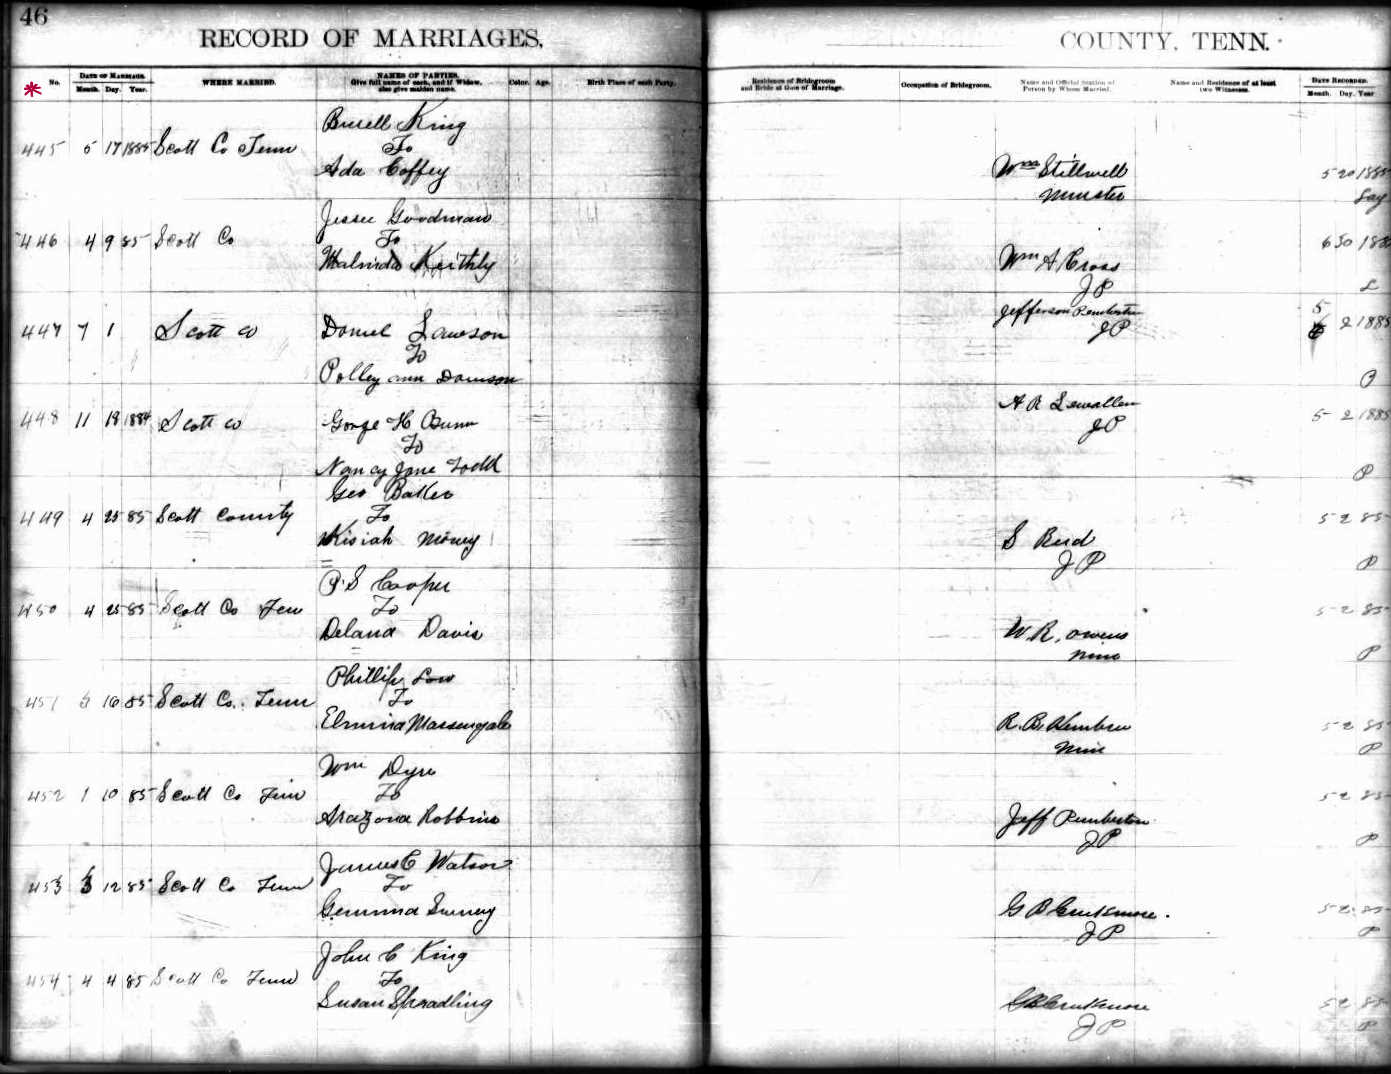 46
RECORD OF MARRIAGES,
COUNTY, TENN.
No.
DATE OF MARRIAGE.
Month. Day. Year.
WHERE MARRIED.
NAMES OF PARTIES.
Give full name of each, and if Widow,
also give maiden name.
Color. Age.
Birth Place of each Party.
Residence of Bridegroom
and Bride at time of Marriage.
Occupation of Bridegroom.
Name and Official Station of
Person by Whom Married.
Name and Residence of at least
two Witnesses.
DATE RECORDED.
Month. Day. Year
Burell King
445 5 17 1885 Scott Co Tenn To
Ada Coffey
Wm Stillwell 5 20 1885
Minister
Jesse Goodman
446 4 9 85 Scott Co To
Malinda Keithly
Wm A Cross
J P
6 30
Jefferson Pemberton
J P
447 7 1 Scott co Daniel Lawson
To
Polley ann
5 2 1885
P
A R Lewallen
J P
448 11 18 1884 Scott co George H Bunn
To
Nancy Jane Todd
5 2 1885
P
Geo Baker
449 4 25 85 Scott County To
Kisiah Money
S Reid
J P
5 2 85
P
P. S Cooper
450 4 25 85 Scott Co Ten To
Delana Davis
W. R. Owens
Mins
5 2 85
P
Phillip Low
451 16 85 Scott Co. Tenn To
Elmina Massengale
R. B.
Min
5 2 85
P
Wm Dyre
452 1 10 85 Scott Co Tenn To
Arazona Robbins
Jeff Pemberton
J P
5 2 85
P
James C Watson
453 3 12 85 Scott Co Tenn To
Gemima
G B
J P
5 2 85
P
John C King
454 4 4 85 Scott Co Tenn To
Susan Spradling
G B
J P
5 2 85
P